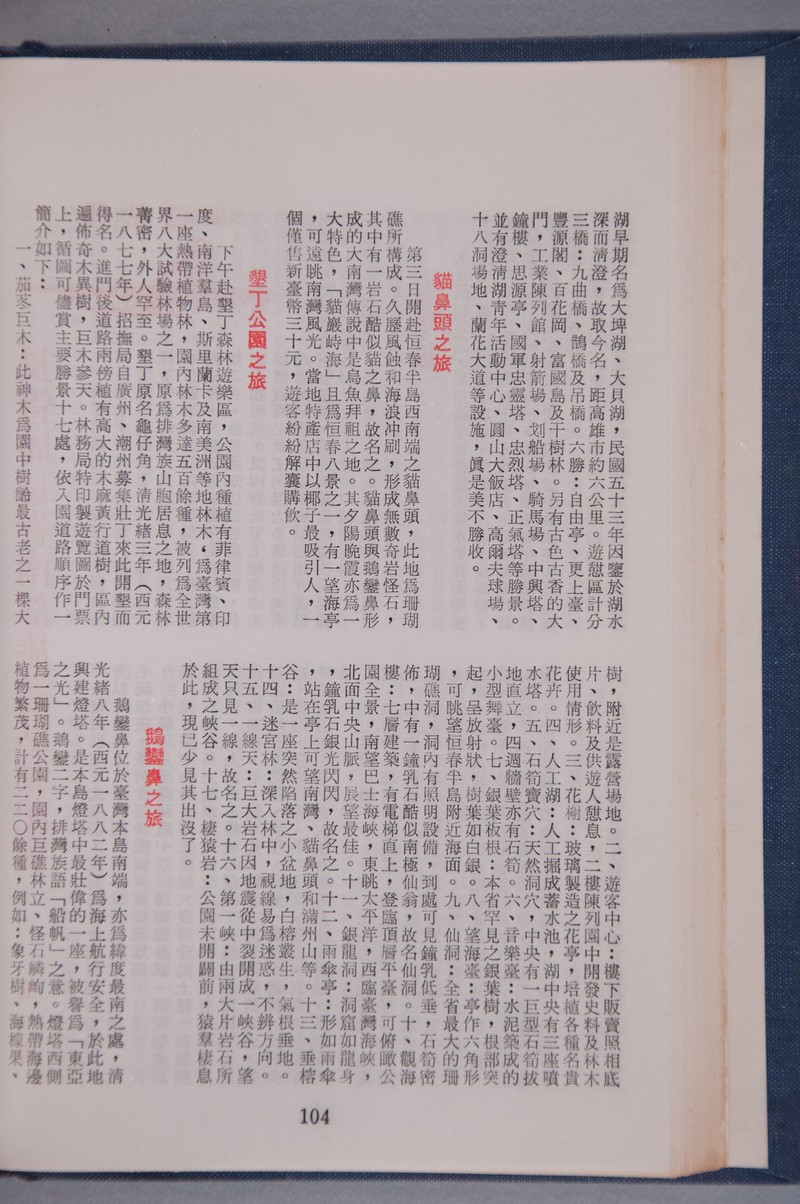 湖早期名爲大埤湖、大貝湖，民國五十三年因鑒於湖水
深而清澄，故取今名，距高雄市約六公里。遊憇區計分
三橋：九曲橋、鵲橋及吊橋。六勝：自由亭、更上臺、
豐源閣、百花岡、富國島及干樹林。另有古色古香的大
門，工業陳列館、射箭場、划船場、騎馬場、中興塔、
鐘樓、思源亭、國軍忠靈塔、忠烈塔、正氣塔等勝景。
並有澄清湖青年活動中心、圓山大飯店、高爾夫球場、
十八洞場地、蘭花大道等設施，眞是美不勝收。
貓鼻頭之旅
第三日開赴恒春半島西南端之貓鼻頭，此地爲珊瑚
礁所構成。久歷風蝕和海浪冲刷，形成無數奇岩怪石，
其中有一岩石酷似貓之鼻，故名之。貓鼻頭與鵝鑾鼻形
成的大南灣傳說中是烏魚拜祖之地。其夕陽晚霞亦爲一
大特色，「貓巖峙海」且爲恒春八景之一，有一望海亭
，可遠眺南灣風光。當地特產店中以椰子最吸引人，一
個僅售新臺幣三十元，遊客紛紛解囊購飲。
墾丁公園之旅
下午赴墾丁森林遊樂區，公園內種植有菲律賓、印
度、南洋羣島、斯里蘭卡及南美洲等地林木，爲臺灣第
一座熱帶植物林，園內林木多達五百餘種，被列爲全世
界八大試驗林場之一，原爲排灣族山胞居息之地，森林
菁密，外人罕至。墾丁原名龜仔角，清光緒三年（西元
一八七七年）招撫局自廣州、潮州募集壯丁來此開墾而
得名。進門後道路兩傍植有高大的木麻黃行道樹，區內
遍佈奇木異樹，巨木參天。林務局特印製遊覽圖於門票
上，循圖可儘賞主要勝景十七處，依入園道路順序作一
簡介如下：
一、茄苳巨木：此神木爲園中樹齡最古老之一棵大
樹，附近是露營場地。二、遊客中心：樓下販賣照相底
片、飲料及供遊人憇息，二樓陳列園中開發史料及林木
使用情形。三、花榭：玻璃製造之花亭，培植各種名貴
花卉。四、人工湖：人工掘成蓄水池，湖中央有三座噴
水塔。五、石筍寶穴：天然洞穴，中央有一巨型石筍拔
地直立，四週牆壁亦有石筍。六、音樂臺：水泥築成的
小型舞臺。七、銀葉板根：本省罕見之銀葉樹，根部突
起，呈放射狀，樹葉如白銀。八、望海臺：亭作六角形
，可眺望恒春半島附近海面。九、仙洞：全省最大的珊
瑚礁洞，洞內有照明設備，到處可見鐘乳低垂，石筍密
佈，中有一鐘乳石酷似南極仙翁，故名仙洞。十、觀海
樓：七層建築，有電梯直上，登臨頂層平臺，可俯瞰公
園全景，南望巴士海峽，東眺太平洋，西臨臺灣海峽，
北面中央山脈，展望最佳。十一、銀龍洞：洞窟如龍身
，鐘乳石銀光閃閃，故名之。十二、雨傘亭：形如雨傘
，站在亭上可望南灣、貓鼻頭和滿州山等。十三、垂榕
谷：是一座突然陷落之小盆地，白榕叢生，氣根垂地。
十四、迷宮林：深入林中，視線易爲迷惑，不辨方向。
十五、一線天：巨大岩石因地震從中裂開成一峽谷，望
天只見一線，故名之。十六、第一峽：由兩大片岩石所
組成之峽谷。十七、棲猿岩：公園未開闢前，猿羣棲息
於此，現已少見其出沒了。
鵝鑾鼻之旅
鵝鑾鼻位於臺灣本島南端，亦爲緯度最南之處，清
光緒八年（西元一八八二年）爲海上航行安全，於此地
興建燈塔。是本島燈塔中最壯偉的一座，被譽爲「東亞
之光」。鵝鑾二字，排灣族語「船帆」之意。燈塔西側
爲一珊瑚礁公園，園內巨礁林立，怪石嶙峋，熱帶海邊
植物繁茂，計有二二〇餘種，例如：象牙樹、海檬果、
104